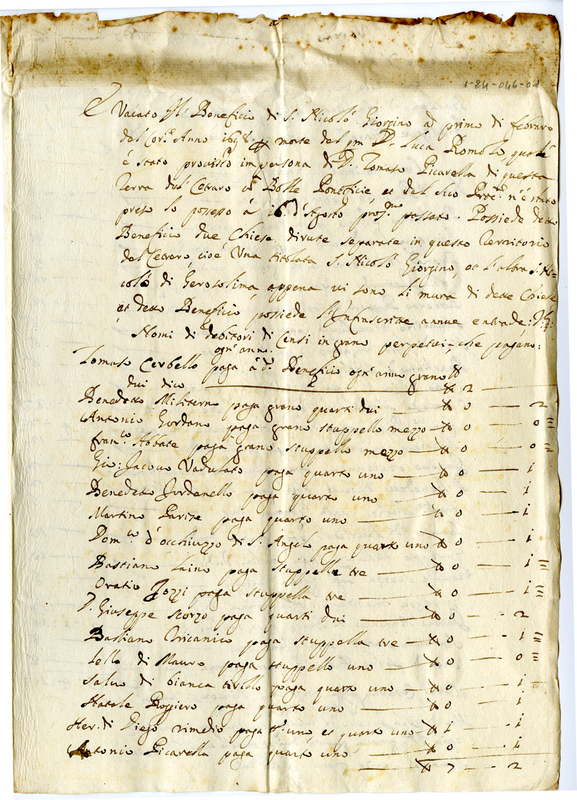 1-84-046-01
Vacato Il Beneficio di S. Nicolò Giorgino a primo di febraro
del Corr. Anno 1698 morte del qm D. Luca Romolo quale
è stato provisto in persona di D. Tomaso Picarella di questa
Terra del Cetraro Bolle Pontificie, et del suo n'è stato
preso lo possesso à 16 d'Agosto pross. passato. Possiede detto
Beneficio due Chiese dirute separate in questo Territorio
del Cetraro, cioè Una titolata S. Nicolò Giorgino, et l'altra S. Ni-
colò di Gerosolima, appena vi sono li mura di dette Chiese
et detto Beneficio possiede l'Infrascritte annue entrade:
Nomi di debitori di Censi in grano perpetui, che pagano:
ogn'anno
Tomaso Cerbello paga a d. Beneficio ogn'anno grano
dui dico 2
Benedetto Militerno paga grano quarti dui — 0 — 2
Antonio Gordano paga grano stuppello mezzo — 0 — 0
Fran.co Abbate paga grano stuppello mezzo — 0 — 0
Gio: Jacovo Vadulato paga quarto uno — 0 — 1
Benedetto Jordanello paga quarto uno — 0 — 1
Martino Parise paga quarto uno — 0 — 1
Dom.co d'occhiuzzo di S. Angelo paga quarto uno 0 — 1
Bastiano Laino paga stuppella tre — 0 — 1 =
Oratio Tozzi paga stuppella tre — 0 — 1 =
D. Giuseppe Scorzo paga quarti dui — 0 — 2
Bastiano paga stuppella tre — 0 — 1 =
Lello di Mauro paga stuppello uno — 0 — 0 =
Salvo di bianca tirello paga quarto uno — 0 — 1
Natale Roggiero paga quarto uno — 0 — 1
Her. di Diego rimedio paga uno et quarto uno 1 — 1
Antonio Picarella paga quarto uno — 0 — 1
7 — 2